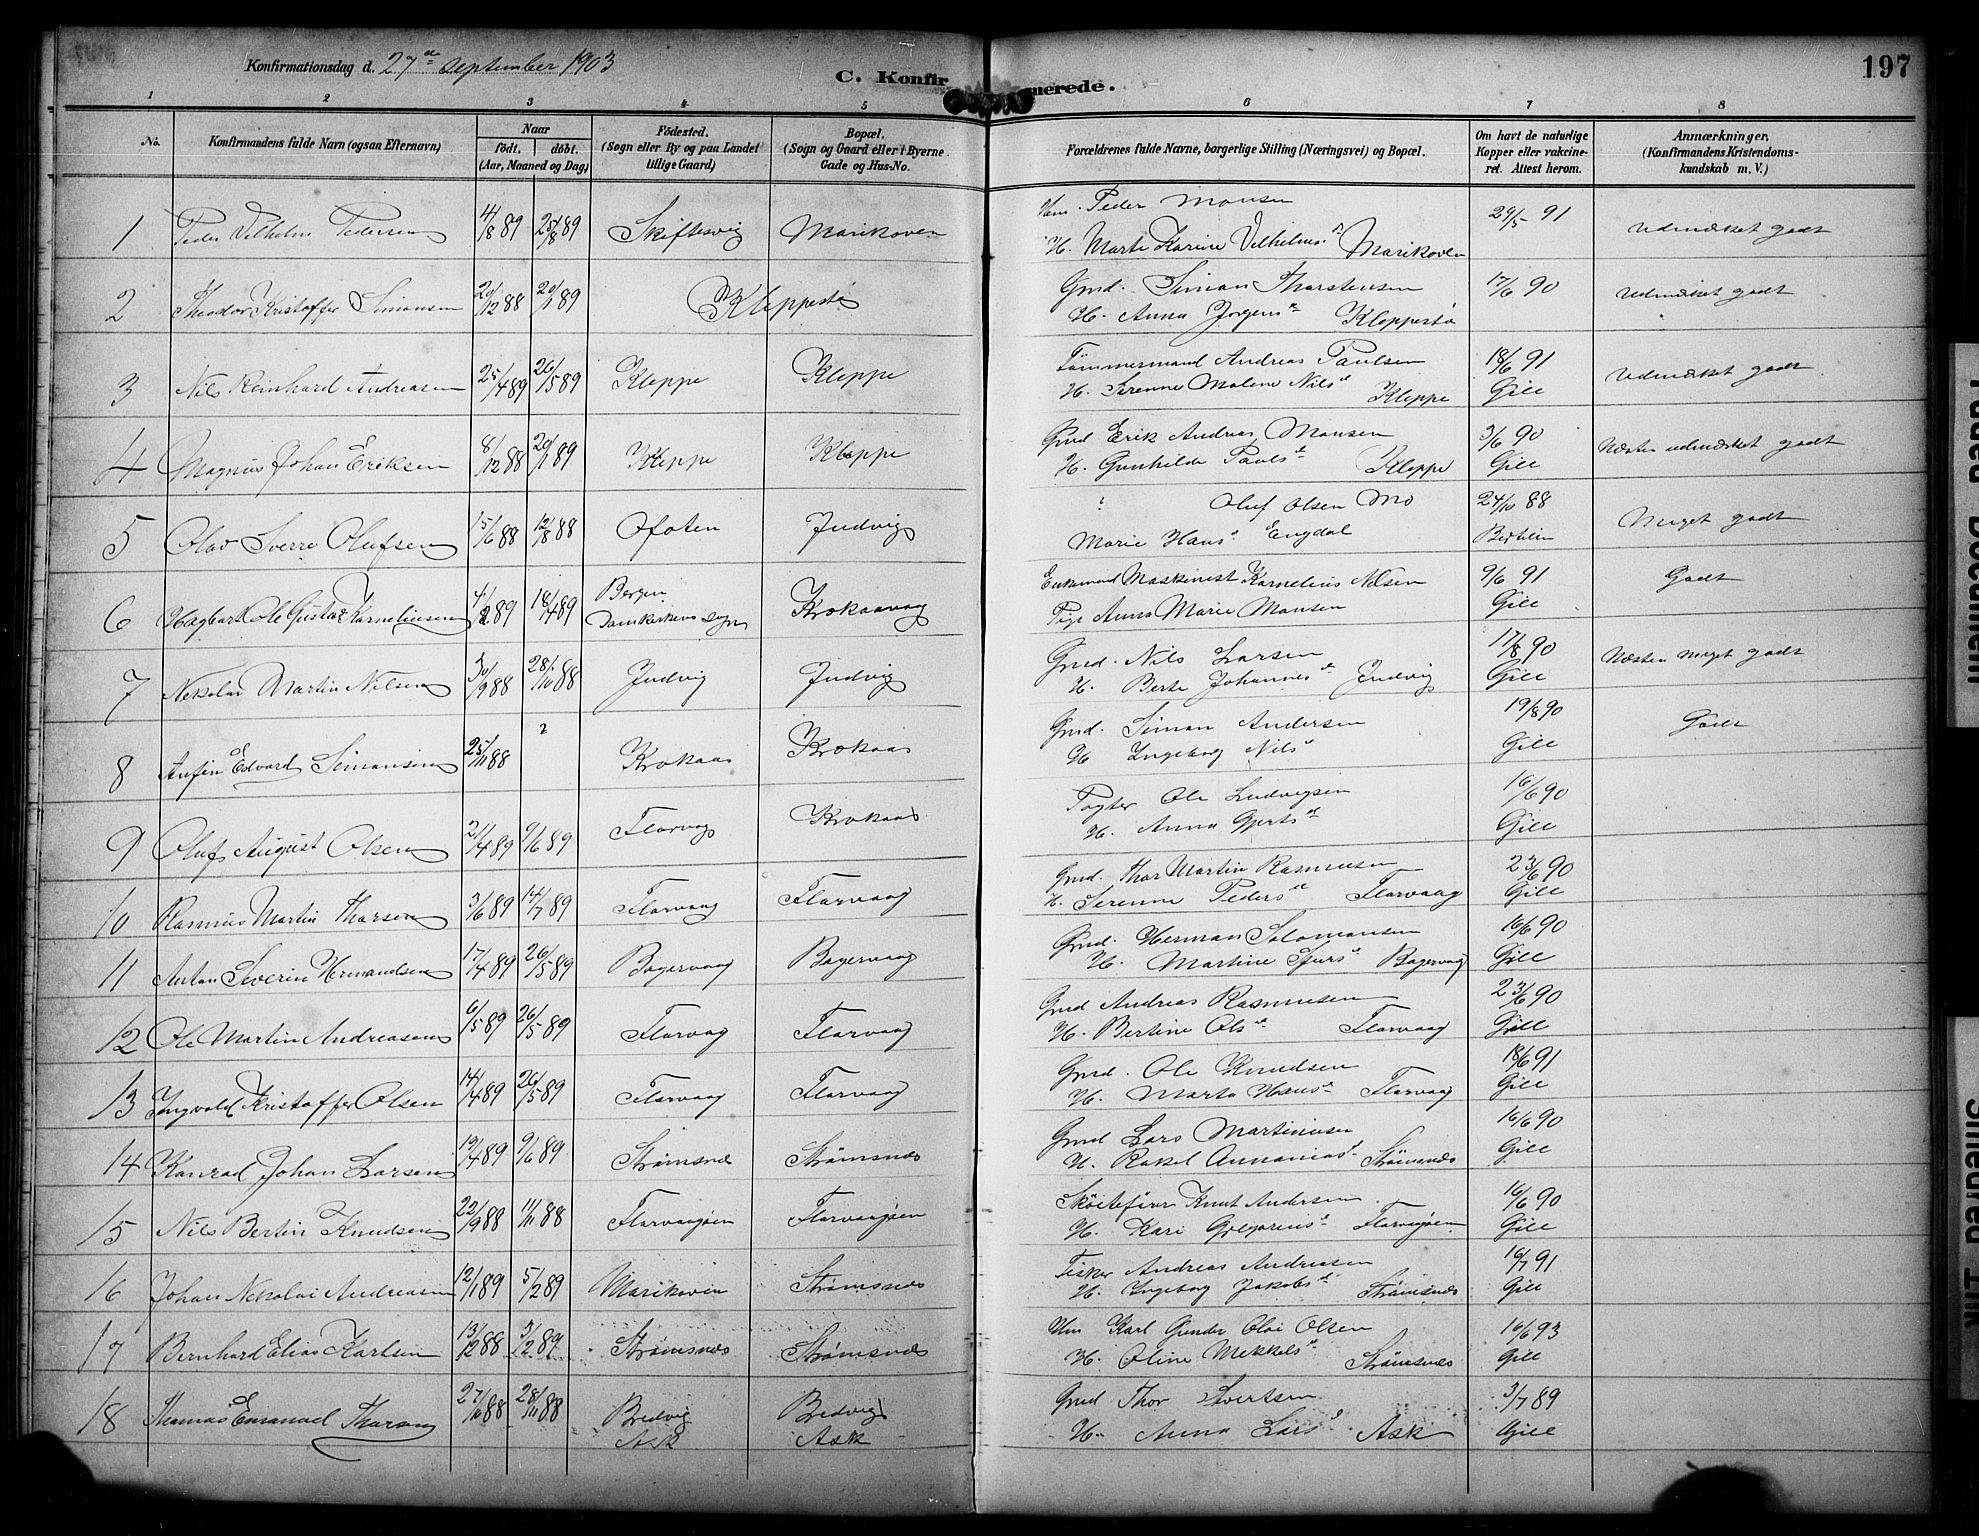 Konfirmationsdag d. 27de september 1903
C. Konfirmerede.
197
1 2 3 4 5 6 7 8
No. Konfirmandens fulde Navn (ogsaa Efternavn) Naar födt. döbt. (Aar, Maaned og Dag) Födested. (Sogn eller By og paa Landet tillige Gaard) Bopæl. (Sogn og Gaard eller i Byerne Gade og Hus-No. Forældrenes fulde Navne, borgerlige Stilling (Næringsvei) og Bopæl. Om havt de naturlige Kopper eller vakcineret. Attest herom. Anmærkninger, (Konfirmandens Kristendomskundskab m. V.)
1 Peder Vilhelm Pedersen 4/8 89 25/8 89 Skiftesvig Marikoven Hm. Peder Monsen 29/5 91 udmærket godt
H. Marte Karine Vilhelms d Marikoven
2 Theodor Kristoffer Simonsen 20/12 88 20/1 89 Kleppestø Gmd. Simon Thorstensen 17/6 90 udmærket godt
H. Anna Jørgens d Kleppestø
3 Nils Reinhard Andreasen 25/4 89 26/5 89 Kleppe Kleppe Tømmermand Andreas Paulsen 18/6 91 udmærket godt
H. Serenne Malene Nils d Kleppe Gill
4 Magnus Johan Eriksen 8/12 88 20/1 89 Kleppe Kleppe Gmd Erik Andreas Monsen 3/6 90 Næsten udmærket godt
H. Gunhilde Pauls d Kleppe Gill
5 Olav Sverre Olufsen 15/6 88 12/8 88 Ofoten Indvig ? Oluf Olsen Mo 24/10 88 Meget godt
Marie Hans d Engdal
6 Hagbart Ole Gustav Kornelinsen 4/2 89 18/4 89 Bergen Domkirkens sogn Krokaavaag Enkemand Maskinist Kornelius Nilsen 9/6 91 Godt
Pige Anna Marie Monsen Gill
7 Nikolai Martin Nilsen 30/9 88 28/10 88 Indvig Indvig Gmd. Nils Larsen 17/8 90 Næsten meget godt
H. Berte Johannes d Indvig Gill
8 Anfin Edvard Simonsen 25/11 88 ? Krokaas Krokaas Gmd. Simon Andersen 19/8 90 Godt
H Ingeborg Nils d Gill
9 Oluf August Olsen 21/4 89 9/6 89 Florvag Krokaas Ole Ludvigsen 16/6 90
H. Anna Gjerts d Gill
10 Rasmus Martin Thorsen 3/6 89 14/7 89 Florvaag Florvaag Gmd. Thor Martin Rasmusen 23/6 90
H. Serenne Peders d Florvaag Gill
11 Anton Severin Hermandsen 17/4 89 26/5 89 Bagervaag Bagervaag Gmd. Herman Salomonsen 16/6 90
H. Martine Sjurs d Bagervaag Gill
12 Ole Martin Andreasen 6/5 89 26/5 89 Florvaag Florvaag Gmd Andreas Rasmusen 23/6 90
H. Bertine Ols d Florvaag Gill
13 Ingvald Kristoffer Olsen 14/4 89 26/5 89 Florvaag Florvaag Gmd. Ole Knudsen 18/6 91
H. Marta Hans d Florvaag Gill
14 Konrad Johan Larsen 19/4 89 9/6 89 Strømsnes Strømsnes Gmd Lars Martinusen 16/6 90
H. Rakel Annanias d Strømsnes Gill
15 Nils Bertin Knudsen 22/9 88 11/11 88 Florvaagøen Florvaagøen Skøitefører Knut Andersen 16/6 90
H. Kari Gregorius d Florvaagøen Gill
16 Johan Nikolai Andreasen 12/1 89 5/2 89 Marikoven Strømsnes Fisker Andreas Andreasen 16/7 91
H. Ingeborg Jakobs d Strømsnes Gill
17 Bernhard Elias Karlsen 13/12 88 3/2 89 Strømsnes Strømsnes Hm Karl Gunder Olai Olsen 16/6 93
H. Oline Mikkels d Strømsnes Gill
18 Thomas Emanuel Thorsen 27/10 88 28/11 88 Bredvig Ask Bredvig Ask Gmd Thor Sivertsen 3/7 89
H. Anna Lars d Ask Gill